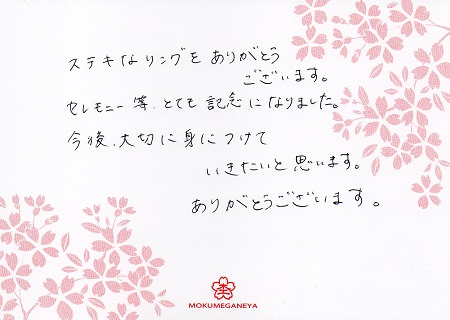 ステキなリングをありがとう
ございます。
セレモニー等、とても記念になりました。
今後、大切に身につけて
いきたいと思います。
ありがとうございます。
MOKUMEGANEYA